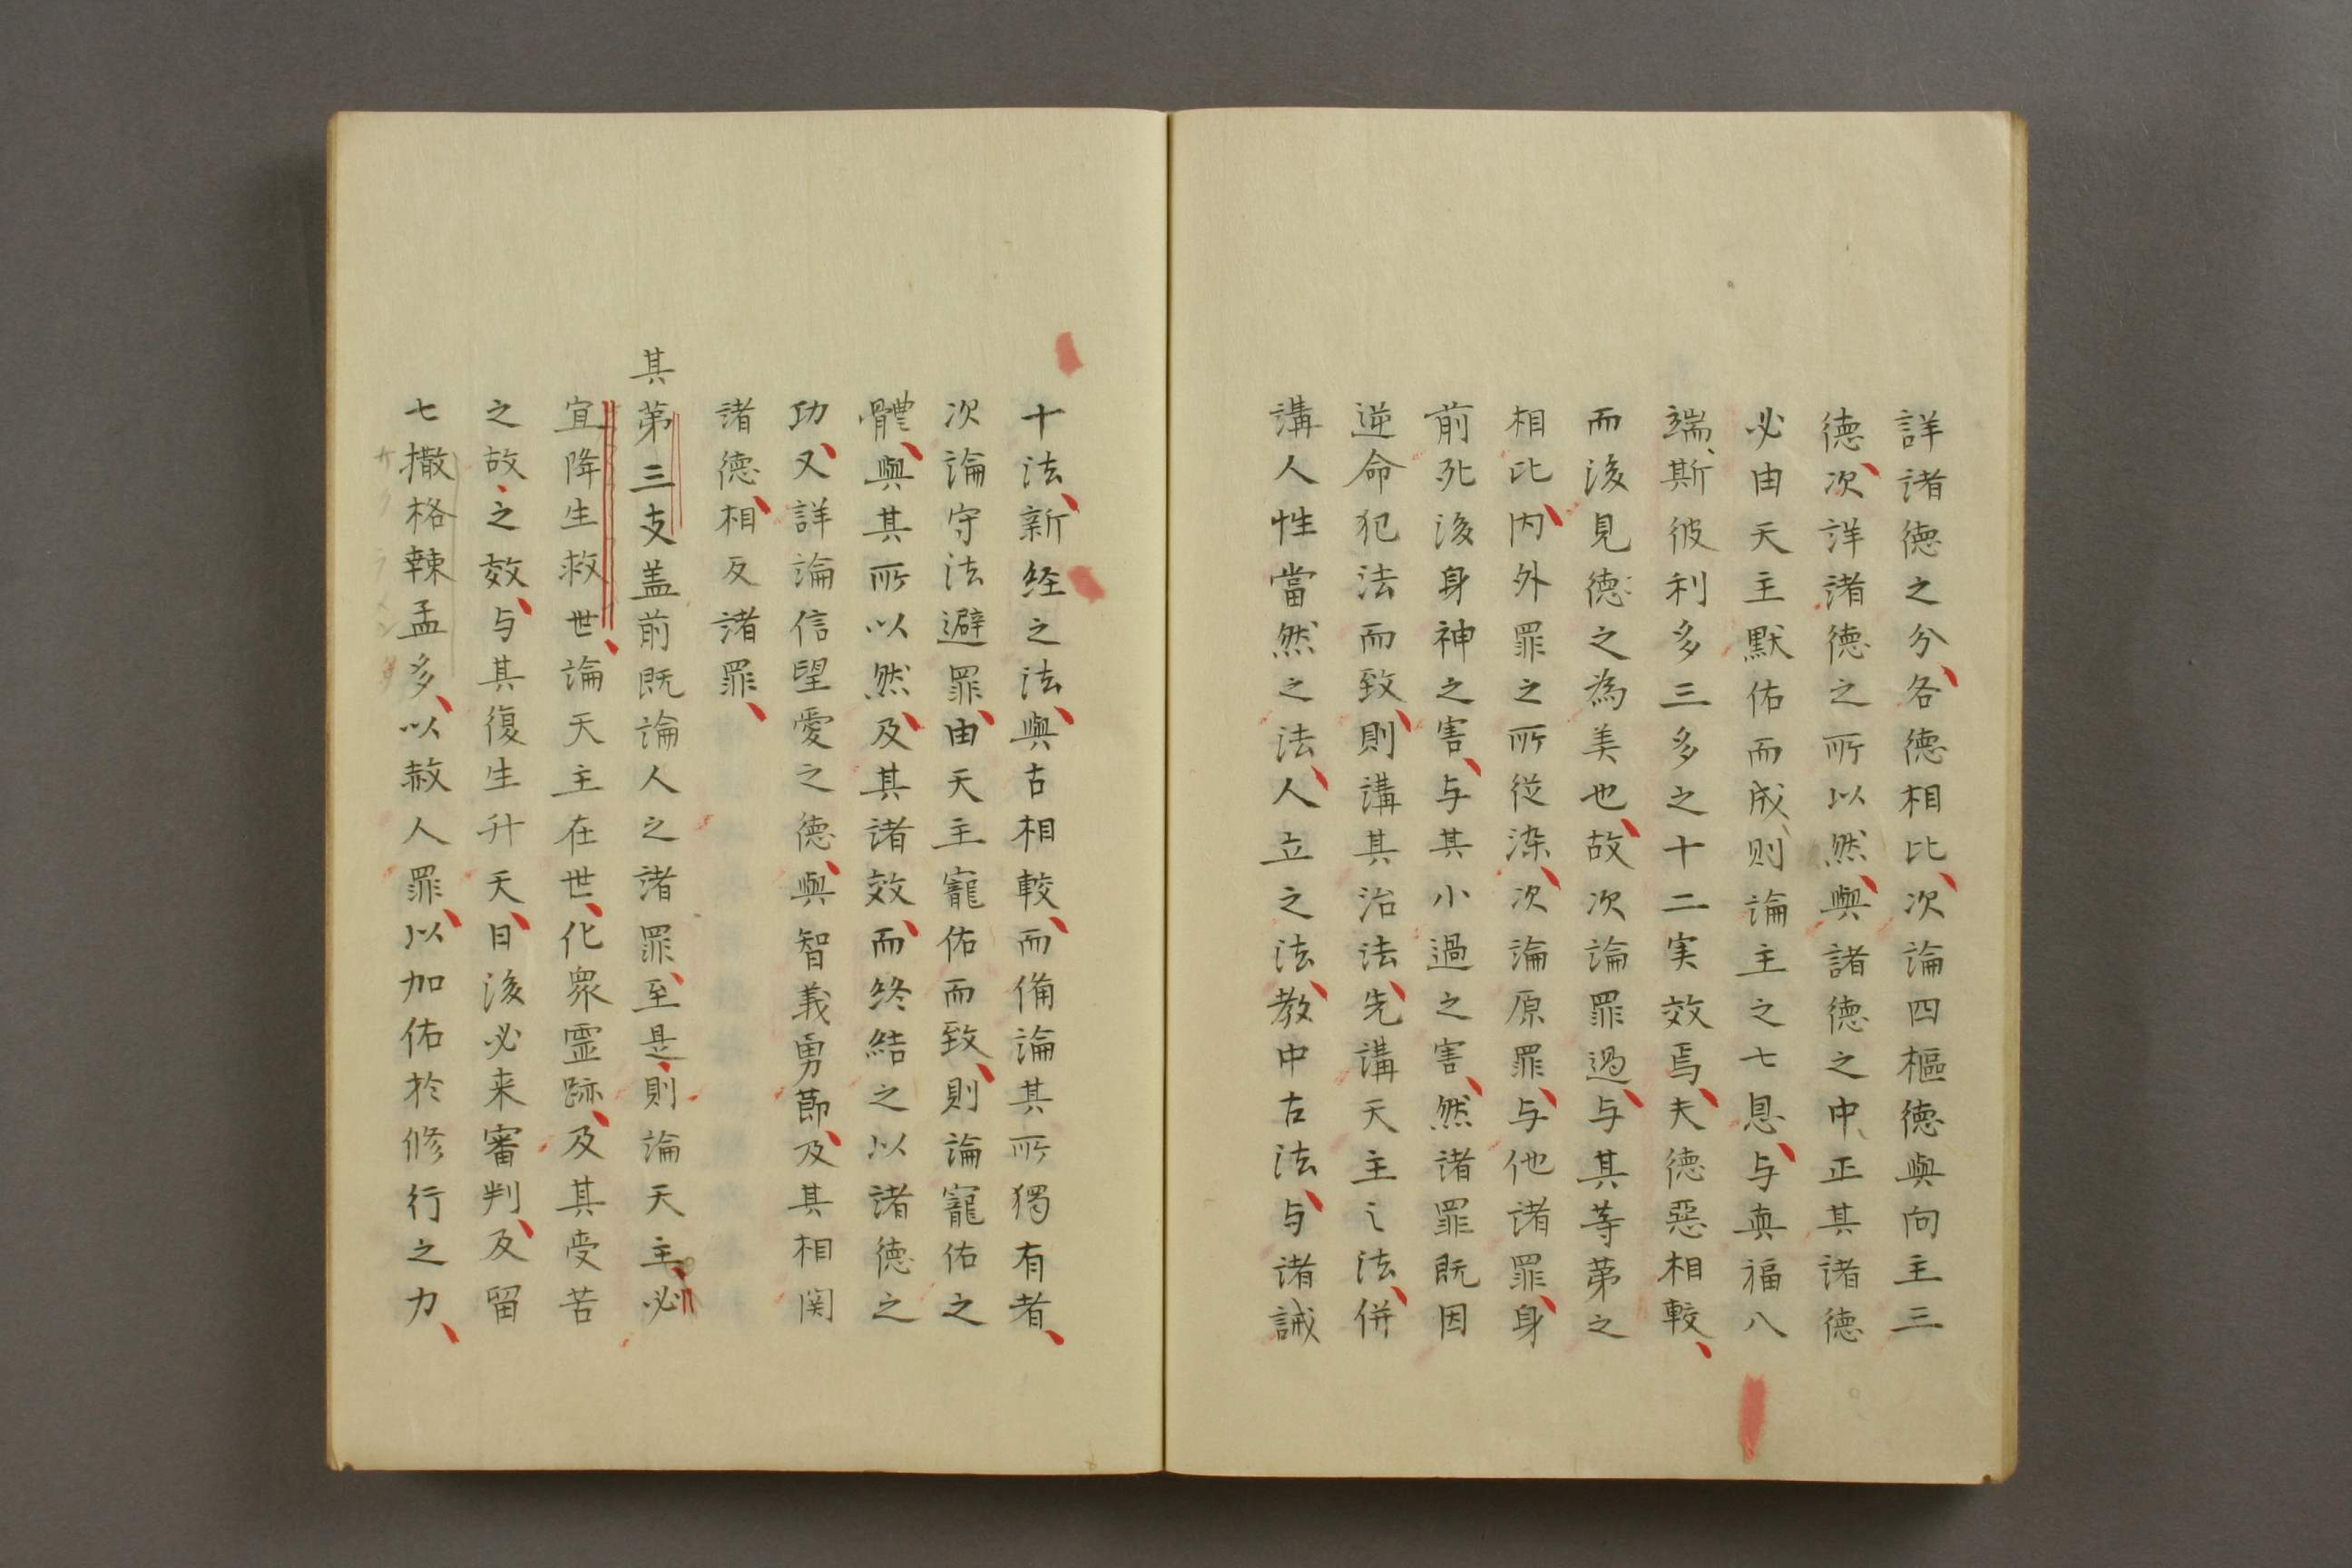 詳諸徳之分、各徳相比、次論四樞徳與向主三
徳、次詳諸徳之所以然、與諸徳之中、正其諸徳
必由天主默佑而成、则論主之七恩、与真福八
端、斯彼利多三多之十二実效焉、夫徳惡相較、
而後見徳之為美也、故次論罪過、与其等第之
相比、内外罪之所從染、次論原罪、与他諸罪、身
前死後身神之害、与其小過之害、然諸罪既因
逆命犯法而致、則講其治法、先講天主之法、併
講人性當然之法、人立之法、教中古法、与諸誡
十法、新経之法、與古相較、而備論其所獨有者、
次論守法避罪、由天主寵佑而致、則論寵佑之
體、與其所以然、及其諸效、而终結之以諸徳之
功、又詳論信望愛之徳、與智義勇節、及其相関
諸徳、相反諸罪、
其第三支盖前既論人之諸罪、至是、則論天主、必
宜降生救世、論天主在世、化衆霊跡、及其受苦
之故、之效、与其復生升天、日後必来審判、及留
七撒格辣孟多、以赦人罪、以加佑於修行之力、